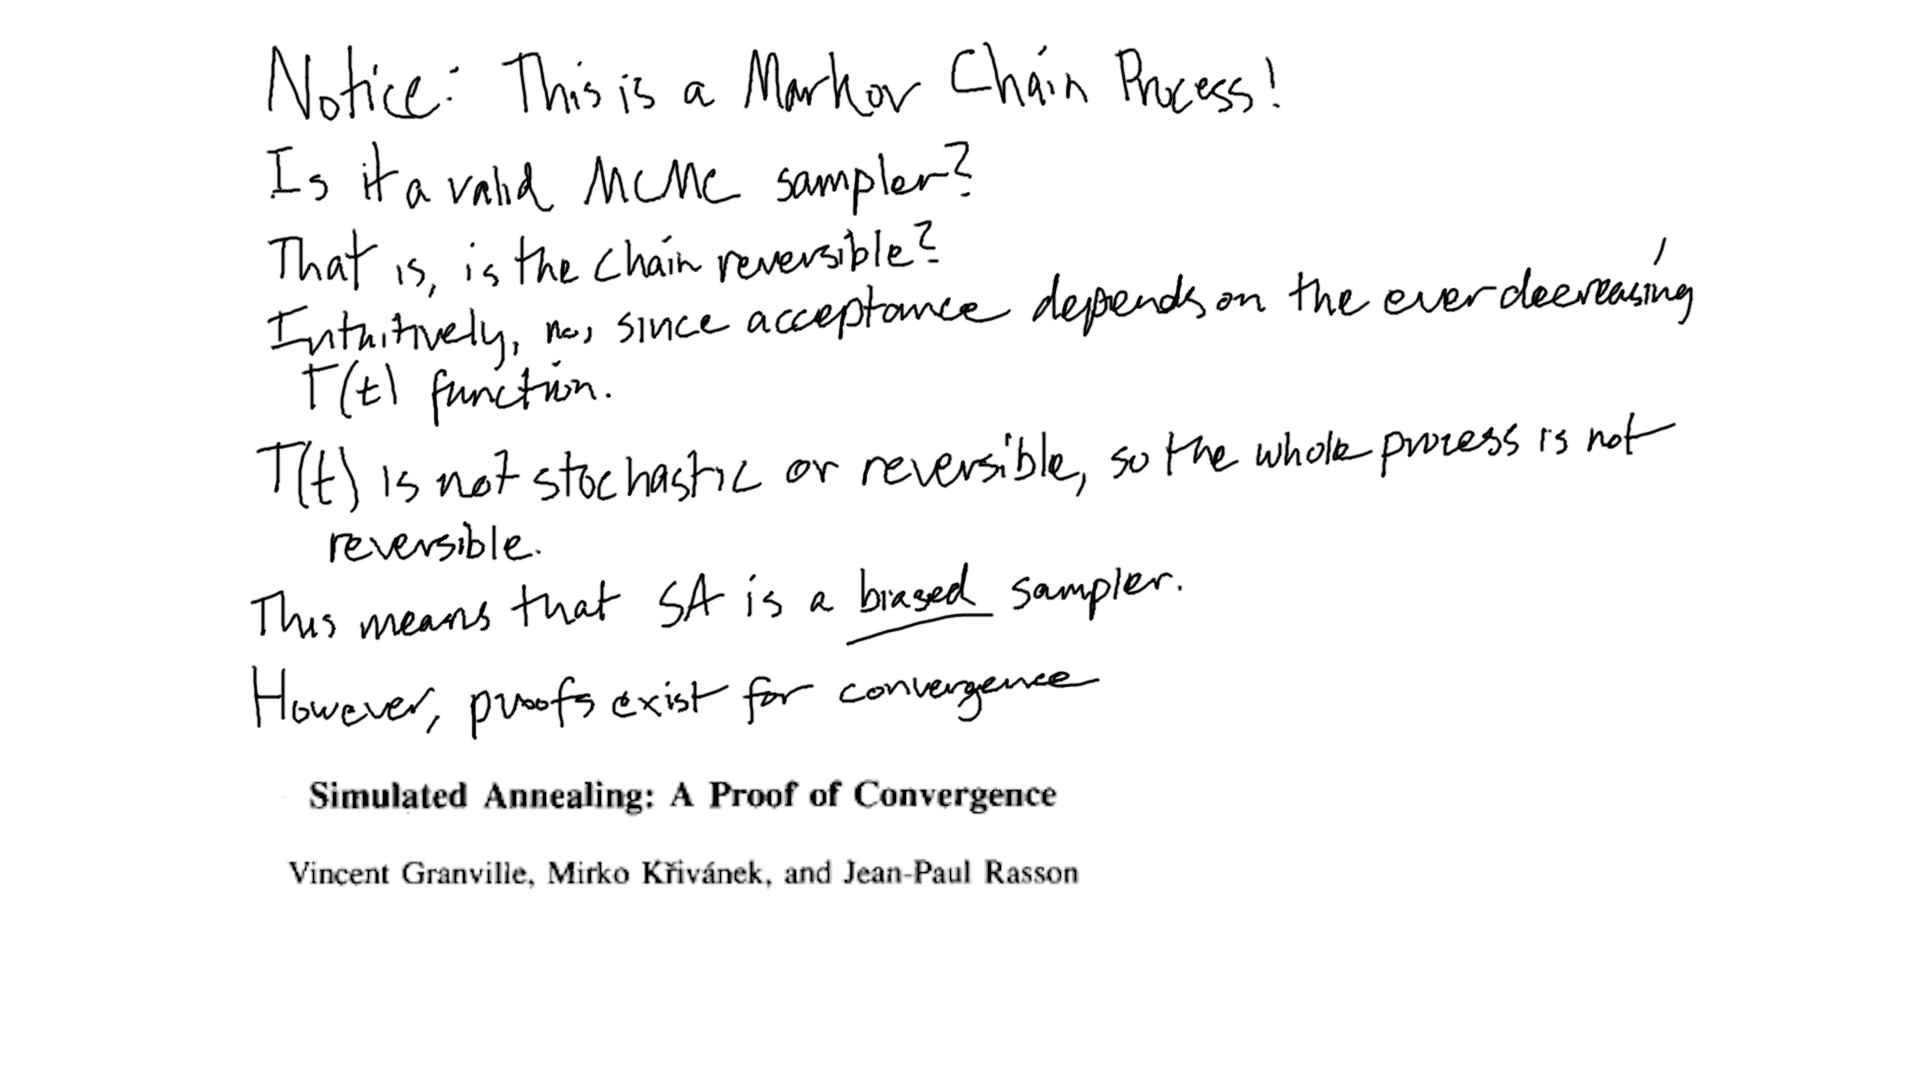 Notice: This is a Markov Chain Process!
Is it a valid MCMC sampler?
That is, is the chain reversible?
Intuitively, no, since acceptance depends on the ever decreasing
T(t) function.
T(t) is not stochastic or reversible, so the whole process is not
reversible.
This means that SA is a biased sampler.
However, proofs exist for convergence
Simulated Annealing: A Proof of Convergence
Vincent Granville, Mirko Křivánek, and Jean-Paul Rasson